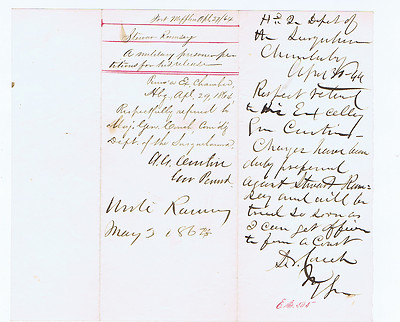 Fort Mifflin Apl 21/64
Stewart Ramsay
A military prisoner pe-
titions for his release
Penn'a Ex. Chamber
Hbg. Apl. 29, 1864
Respectfully referred to
Maj. Gen. Couch Com'dg
Dept. of the Susquehanna
A. G. Curtin
Gov Penna
Write Ramsay
May 3 1864
Hd Q Dept of
the Susquehanna
Chambersbg
April 30 - 64
Respect returned
to His Excellcy
Gov Curtin -
Charges have been
duly preferred
against Stewart Ram-
say and will be
tried so soon as
I can get officers
to form a Court
D. N. Couch
Maj Gen